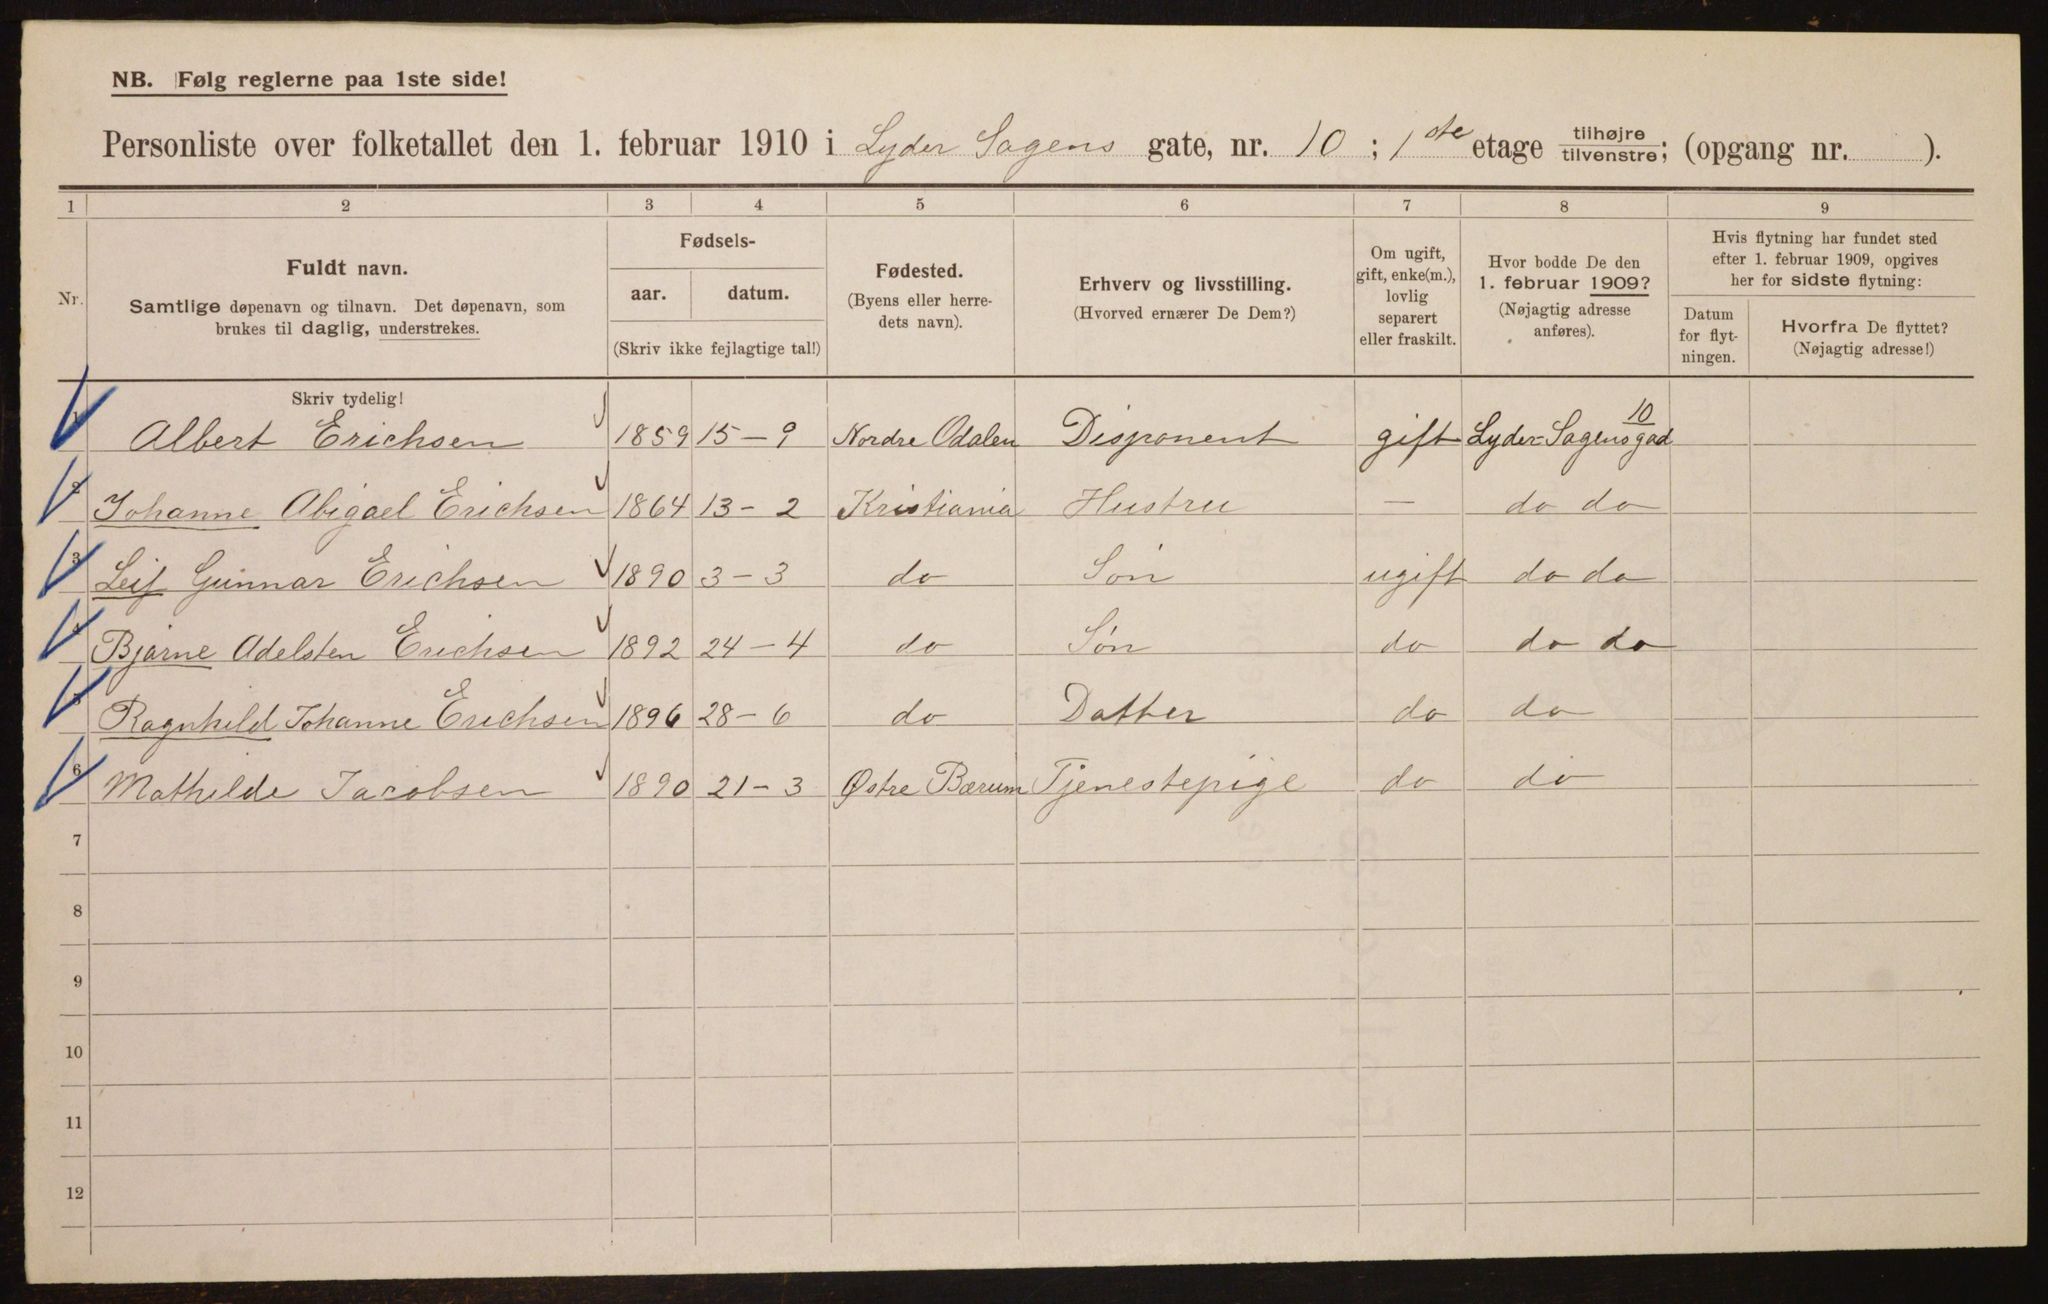 NB. Følg reglerne paa 1ste side!
Personliste over folketallet den 1. februar 1910 i Lyder Sagens gate, nr. 10; 1ste etage tilhøjre/tilvenstre; (opgang nr. ).
1 2 3 4 5 6 7 8 9
Nr.
Fuldt navn.
Samtlige døpenavn og tilnavn. Det døpenavn, som
brukes til daglig, understrekes.
Fødsels-
aar. datum.
(Skriv ikke fejlagtige tal!)
Fødested.
(Byens eller herre-
dets navn).
Erhverv og livsstilling.
(Hvorved ernærer De Dem?)
Om ugift,
gift, enke(m.),
lovlig
separert
eller fraskilt.
Hvor bodde De den
1. februar 1909?
(Nøjagtig adresse
anføres).
Hvis flytning har fundet sted
efter 1. februar 1909, opgives
her for sidste flytning:
Datum
for flyt-
ningen.
Hvorfra De flyttet?
(Nøjagtig adresse!)
Skriv tydelig!
1 Albert Erichsen 1859 15-9 Nordre Odalen Disponent gift Lyder-Sagens gad 10
2 Johanne Abigael Erichsen 1864 13-2 Kristiania Hustru — do do
3 Leif Gunnar Erichsen 1890 3-3 do Søn ugift do do
4 Bjarne Adelsten Erichsen 1892 24-4 do Søn do do do
5 Ragnhild Johanne Erichsen 1896 28-6 do Datter do do
6 Mathilde Jacobsen 1890 21-3 Østre Bærum Tjenestepige do do
7
8
9
10
11
12